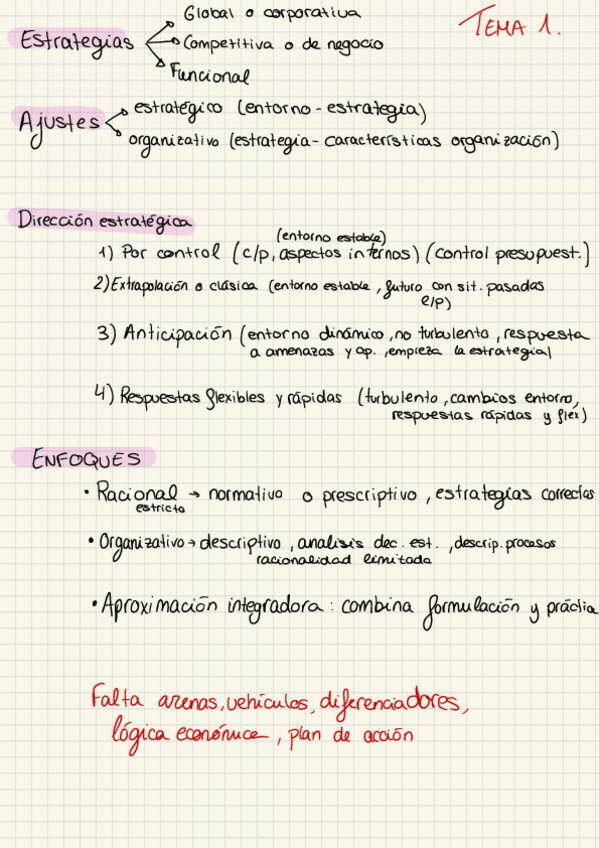 TEMA 1.
Estrategias
Global o corporativa
Competitiva o de negocio
Funcional
Ajustes
estratégico (entorno - estrategia)
organizativo (estrategia - características organización)
Dirección estratégica
(entorno estable)
1) Por control (c/p, aspectos internos) (control presupuest.)
2) Extrapolación o clásica (entorno estable, futuro con sit. pasadas
l/p)
3) Anticipación (entorno dinámico, no turbulento, respuesta
a amenazas y op., empieza la estrategia)
4) Respuestas flexibles y rápidas (turbulento, cambios entorno,
respuestas rápidas y flex)
ENFOQUES
• Racional → normativo o prescriptivo, estrategias correctas
estricta
• Organizativo → descriptivo, analisis dec. est., descrip. procesos
racionalidad limitada
• Aproximación integradora: combina formulación y práctia
Falta arenas, vehículos, diferenciadores,
lógica económica, plan de acción